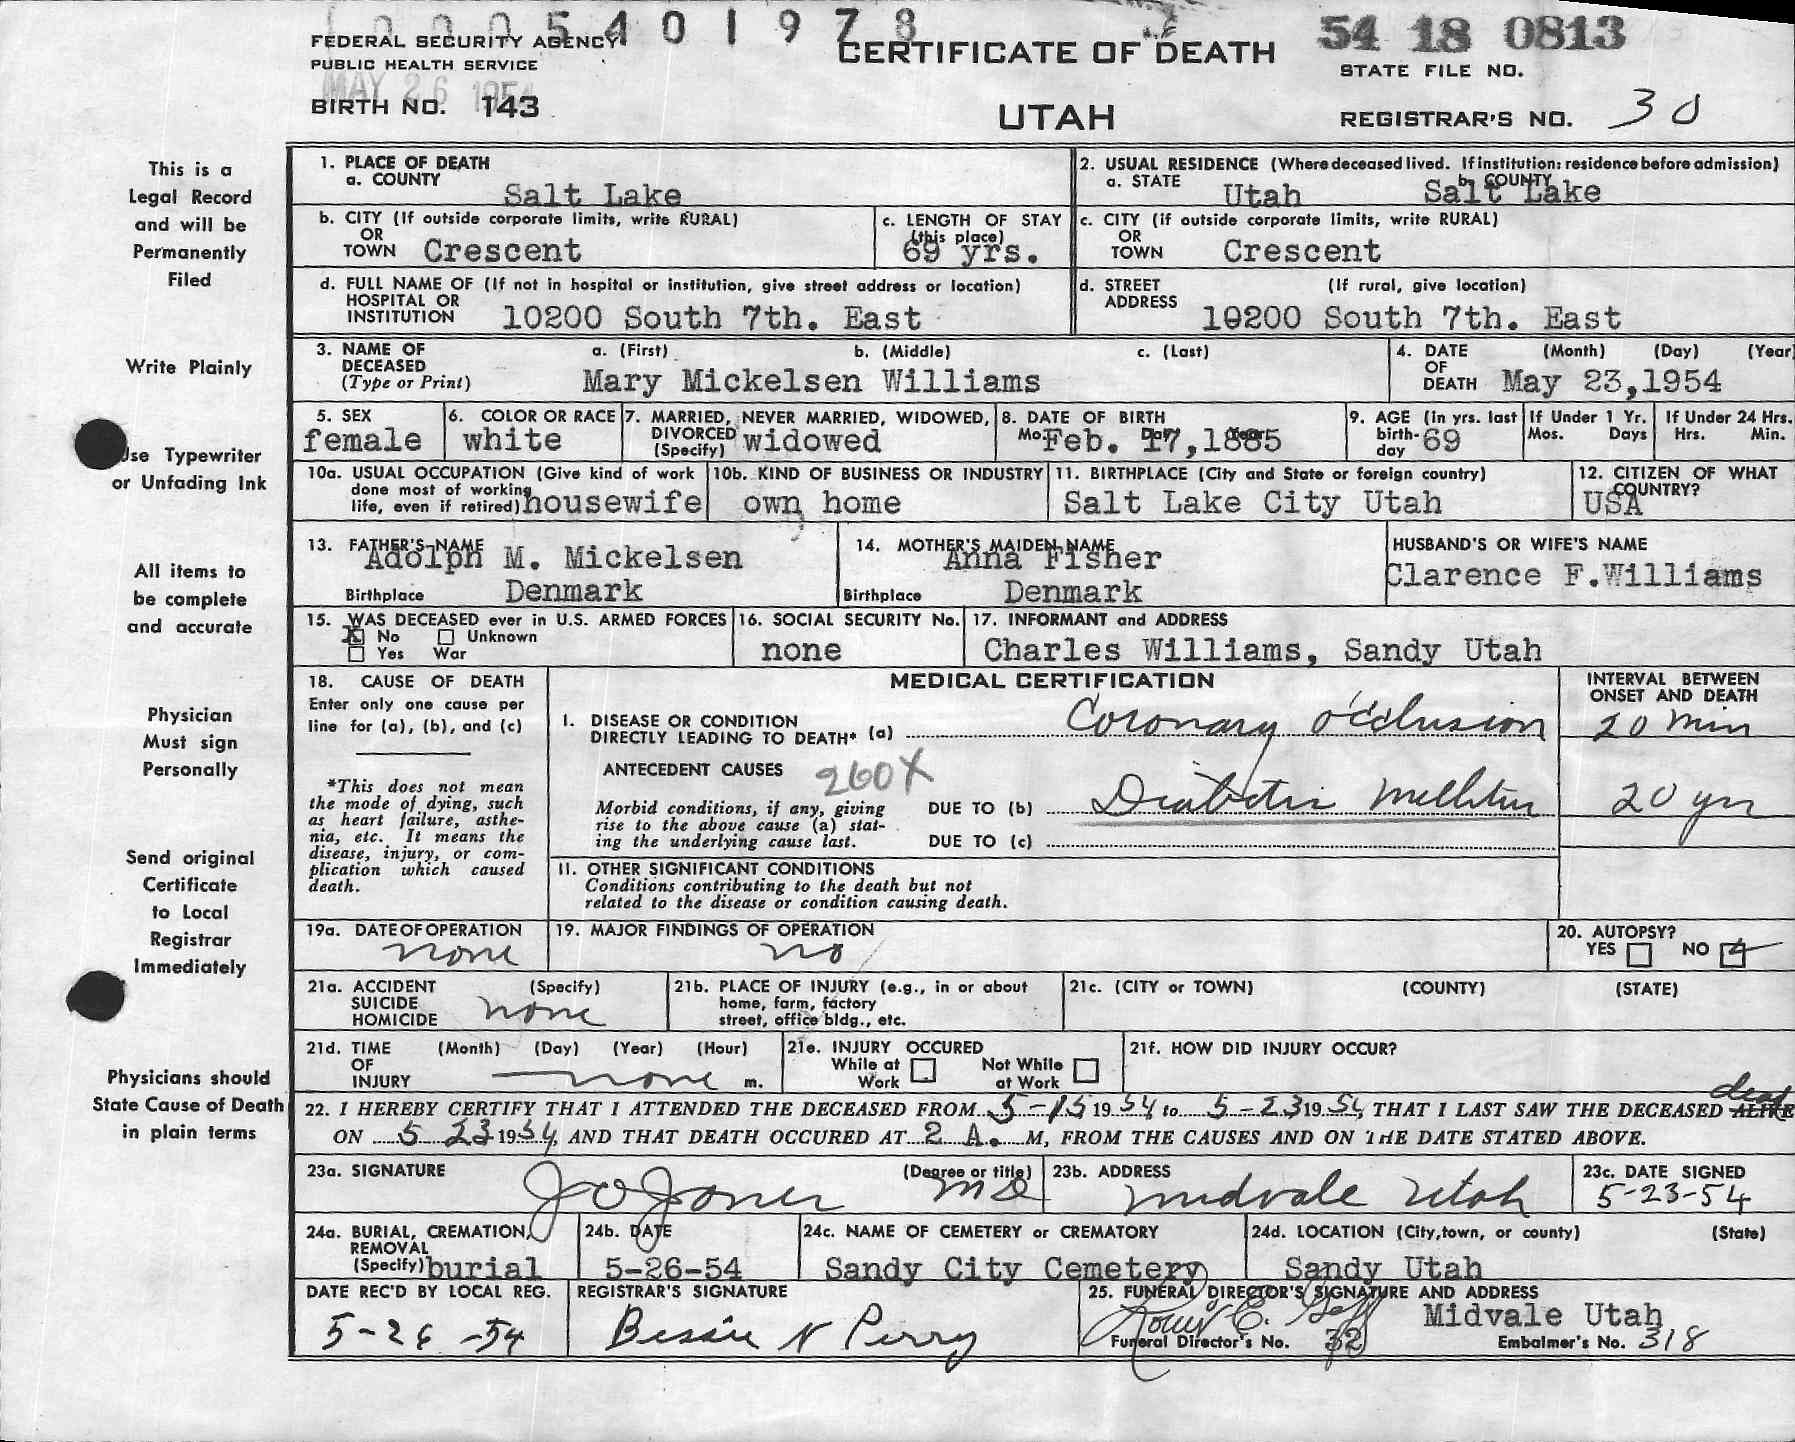 1 0 0 0 5 4 0 1 9 7 8
54 18 0813
FEDERAL SECURITY AGENCY
PUBLIC HEALTH SERVICE
MAY 26 1954
BIRTH NO. 143
CERTIFICATE OF DEATH
UTAH
STATE FILE NO.
REGISTRAR'S NO. 30
This is a
Legal Record
and will be
Permanently
Filed
Write Plainly
Use Typewriter
or Unfading Ink
All items to
be complete
and accurate
Physician
Must sign
Personally
Send original
Certificate
to Local
Registrar
Immediately
Physicians should
State Cause of Death
in plain terms
1. PLACE OF DEATH
a. COUNTY Salt Lake
2. USUAL RESIDENCE (Where deceased lived. If institution: residence before admission)
a. STATE Utah b. COUNTY Salt Lake
b. CITY (If outside corporate limits, write RURAL)
OR
TOWN Crescent
c. LENGTH OF STAY
(this place)
69 yrs.
c. CITY (if outside corporate limits, write RURAL)
OR
TOWN Crescent
d. FULL NAME OF (If not in hospital or institution, give street address or location)
HOSPITAL OR
INSTITUTION 10200 South 7th. East
d. STREET (If rural, give location)
ADDRESS 10200 South 7th. East
3. NAME OF a. (First) b. (Middle) c. (Last)
DECEASED
(Type or Print) Mary Mickelsen Williams
4. DATE (Month) (Day) (Year)
OF
DEATH May 23,1954
5. SEX
female
6. COLOR OR RACE
white
7. MARRIED, NEVER MARRIED, WIDOWED,
DIVORCED
(Specify) widowed
8. DATE OF BIRTH
Mo. Day Year
Feb. 17,1885
9. AGE (In yrs. last
birth-
day 69
If Under 1 Yr.
Mos. Days
If Under 24 Hrs.
Hrs. Min.
10a. USUAL OCCUPATION (Give kind of work
done most of working
life, even if retired) housewife
10b. KIND OF BUSINESS OR INDUSTRY
own home
11. BIRTHPLACE (City and State or foreign country)
Salt Lake City Utah
12. CITIZEN OF WHAT
COUNTRY?
USA
13. FATHER'S NAME
Adolph M. Mickelsen
Birthplace Denmark
14. MOTHER'S MAIDEN NAME
Anna Fisher
Birthplace Denmark
HUSBAND'S OR WIFE'S NAME
Clarence F.Williams
15. WAS DECEASED ever in U.S. ARMED FORCES
X No Unknown
Yes War
16. SOCIAL SECURITY No.
none
17. INFORMANT and ADDRESS
Charles Williams, Sandy Utah
18. CAUSE OF DEATH
Enter only one cause per
line for (a), (b), and (c)
*This does not mean
the mode of dying, such
as heart failure, asthe-
nia, etc. It means the
disease, injury, or com-
plication which caused
death.
MEDICAL CERTIFICATION
I. DISEASE OR CONDITION
DIRECTLY LEADING TO DEATH* (a) Coronary occlusion
ANTECEDENT CAUSES 260X
Morbid conditions, if any, giving
rise to the above cause (a) stat-
ing the underlying cause last.
DUE TO (b) Diabetis Mellitus
DUE TO (c)
II. OTHER SIGNIFICANT CONDITIONS
Conditions contributing to the death but not
related to the disease or condition causing death.
INTERVAL BETWEEN
ONSET AND DEATH
20 min
20 yr
19a. DATE OF OPERATION
none
19. MAJOR FINDINGS OF OPERATION
no
20. AUTOPSY?
YES NO
21a. ACCIDENT (Specify)
SUICIDE
HOMICIDE none
21b. PLACE OF INJURY (e.g., in or about
home, farm, factory
street, office bldg., etc.
21c. (CITY or TOWN) (COUNTY) (STATE)
21d. TIME (Month) (Day) (Year) (Hour)
OF
INJURY none m.
21e. INJURY OCCURED
While at
Work
Not While
at Work
21f. HOW DID INJURY OCCUR?
dead
22. I HEREBY CERTIFY THAT I ATTENDED THE DECEASED FROM 5-15 1954 to 5-23 1954, THAT I LAST SAW THE DECEASED ALIVE
ON 5 23 1954, AND THAT DEATH OCCURED AT 2 A. M, FROM THE CAUSES AND ON THE DATE STATED ABOVE.
23a. SIGNATURE (Degree or title)
J O Jones MD
23b. ADDRESS
Midvale Utah
23c. DATE SIGNED
5-23-54
24a. BURIAL, CREMATION,
REMOVAL
(Specify) burial
24b. DATE
5-26-54
24c. NAME OF CEMETERY or CREMATORY
Sandy City Cemetery
24d. LOCATION (City,town, or county) (State)
Sandy Utah
DATE REC'D BY LOCAL REG.
5-26-54
REGISTRAR'S SIGNATURE
Bessie N Perry
25. FUNERAL DIRECTOR'S SIGNATURE AND ADDRESS
E. Midvale Utah
Funeral Director's No. 32
Embalmer's No. 318